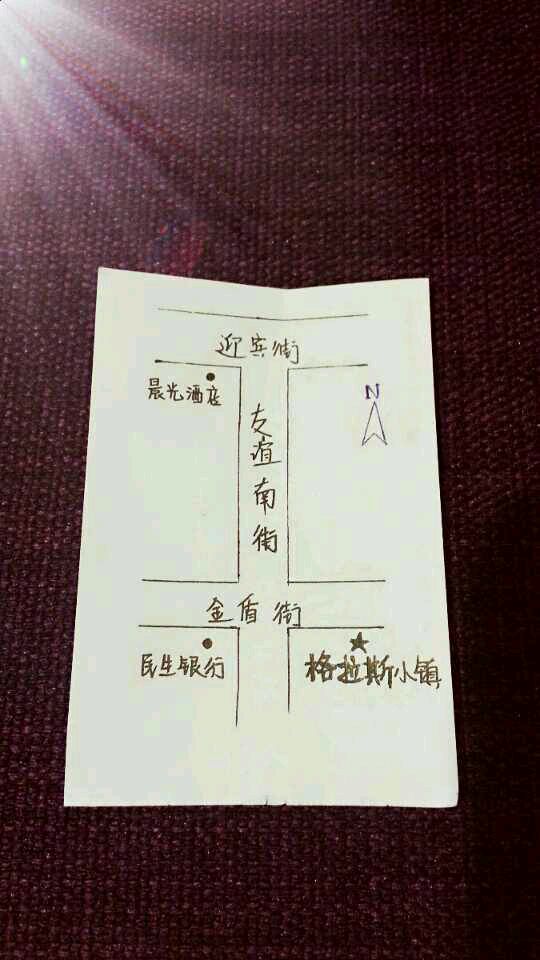 迎宾街
晨光酒店
N
友谊南街
金盾街
民生银行
格拉斯小镇